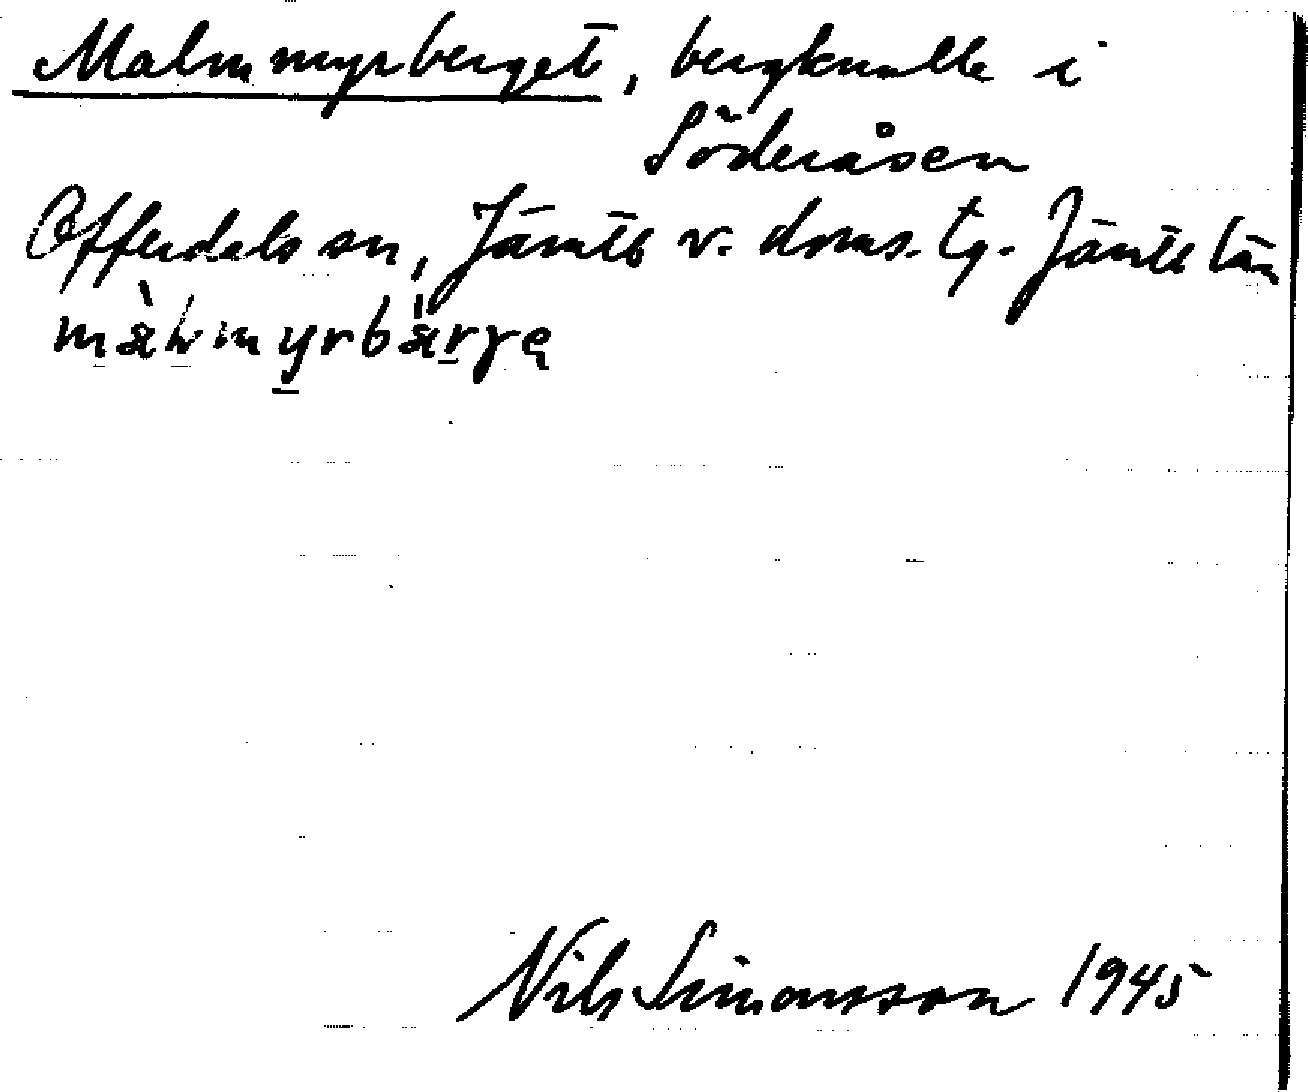 Malmmyrberget, bergknalle i
Söderåsen
Offerdals sn, Jämtl. v. doms. tg. Jämtl. län
Nils Simonsson 1945